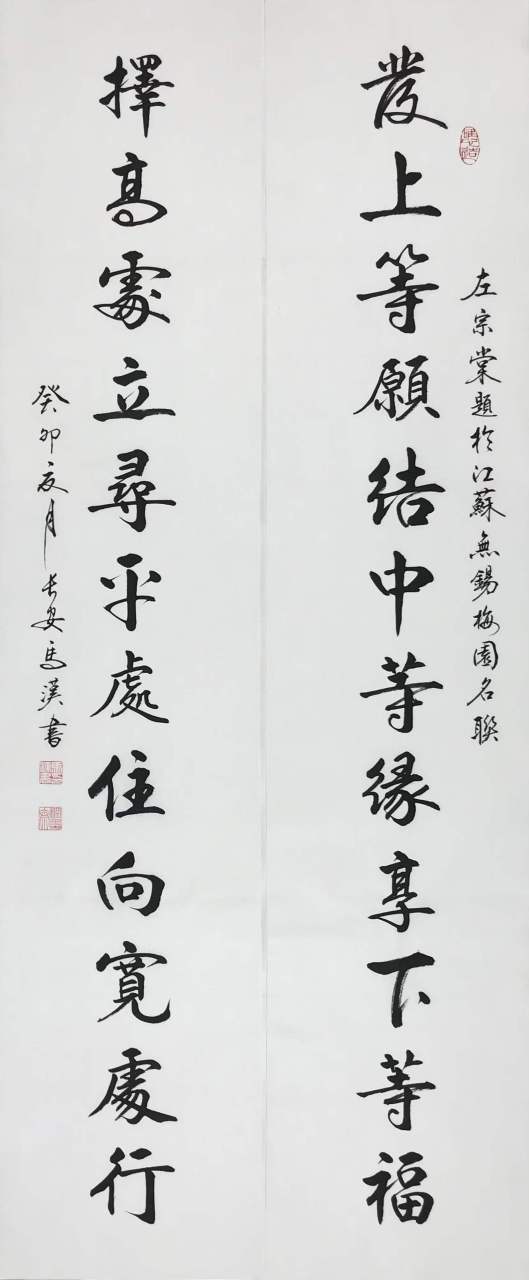 左宗棠題於江蘇無錫梅園名聯
發上等願結中等緣享下等福
擇高處立尋平處住向寬處行
癸卯夏月長安馬漢書